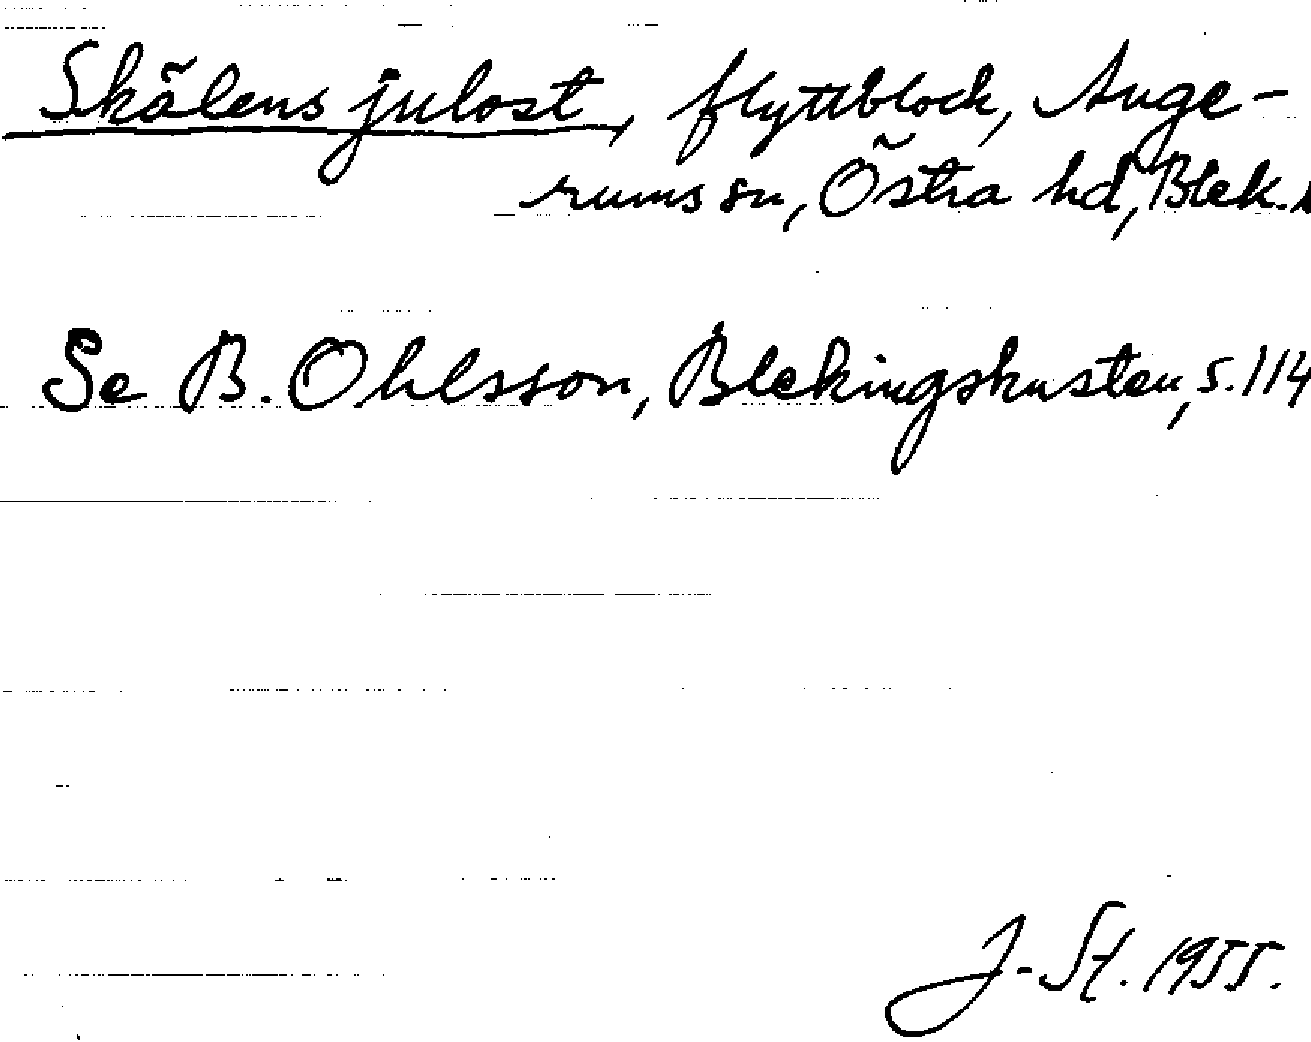 Skälens julost, flyttblock, Auge-
rums sn, Östra hd, Blek.
Se B. Ohlsson, Blekingskusten, s. 114
J-St. 1955.